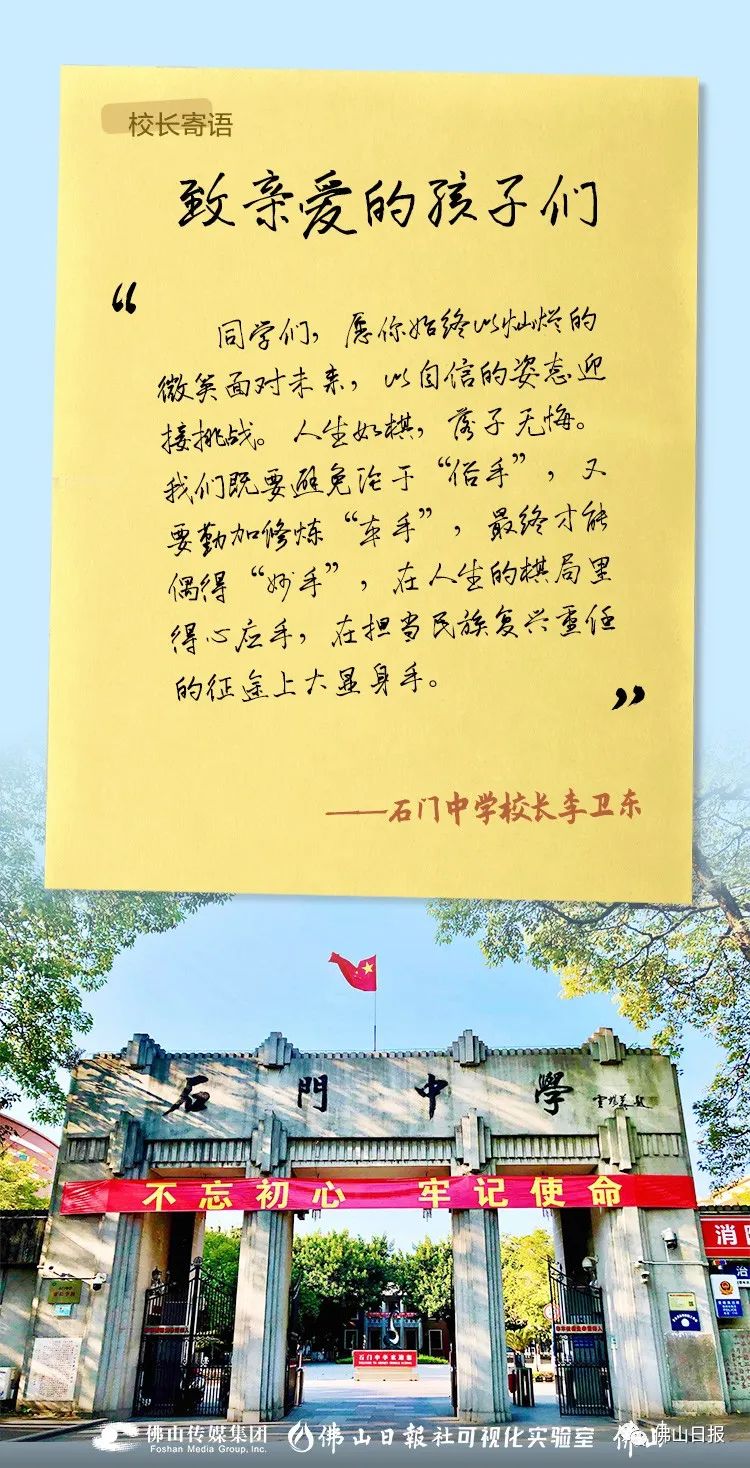 校长寄语
致亲爱的孩子们
“
同学们，愿你始终以灿烂的
微笑面对未来，以自信的姿态迎
接挑战。人生如棋，落子无悔。
我们既要避免沦于“俗手”，又
要勤加修炼“本手”，最终才能
偶得“妙手”，在人生的棋局里
得心应手，在担当民族复兴重任
的征途上大显身手。
”
——石门中学校长李卫东
石門中學
不忘初心 牢记使命
消防
治
石门中学欢迎您
佛山传媒集团
Foshan Media Group, Inc.
佛山日报社可视化实验室
佛山
佛山日报